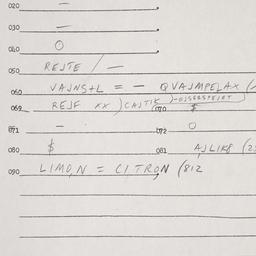 020 —
030 —
040 O
050 REJTE / —
060 VAJNS+L = — QVAJMPELAX (
069 REJF XX ) CAJTIK )
070 $
071 — 072 O
080 $ 081 AJLIK8 (2
090 LIMO,N = CI,TRO,N (812